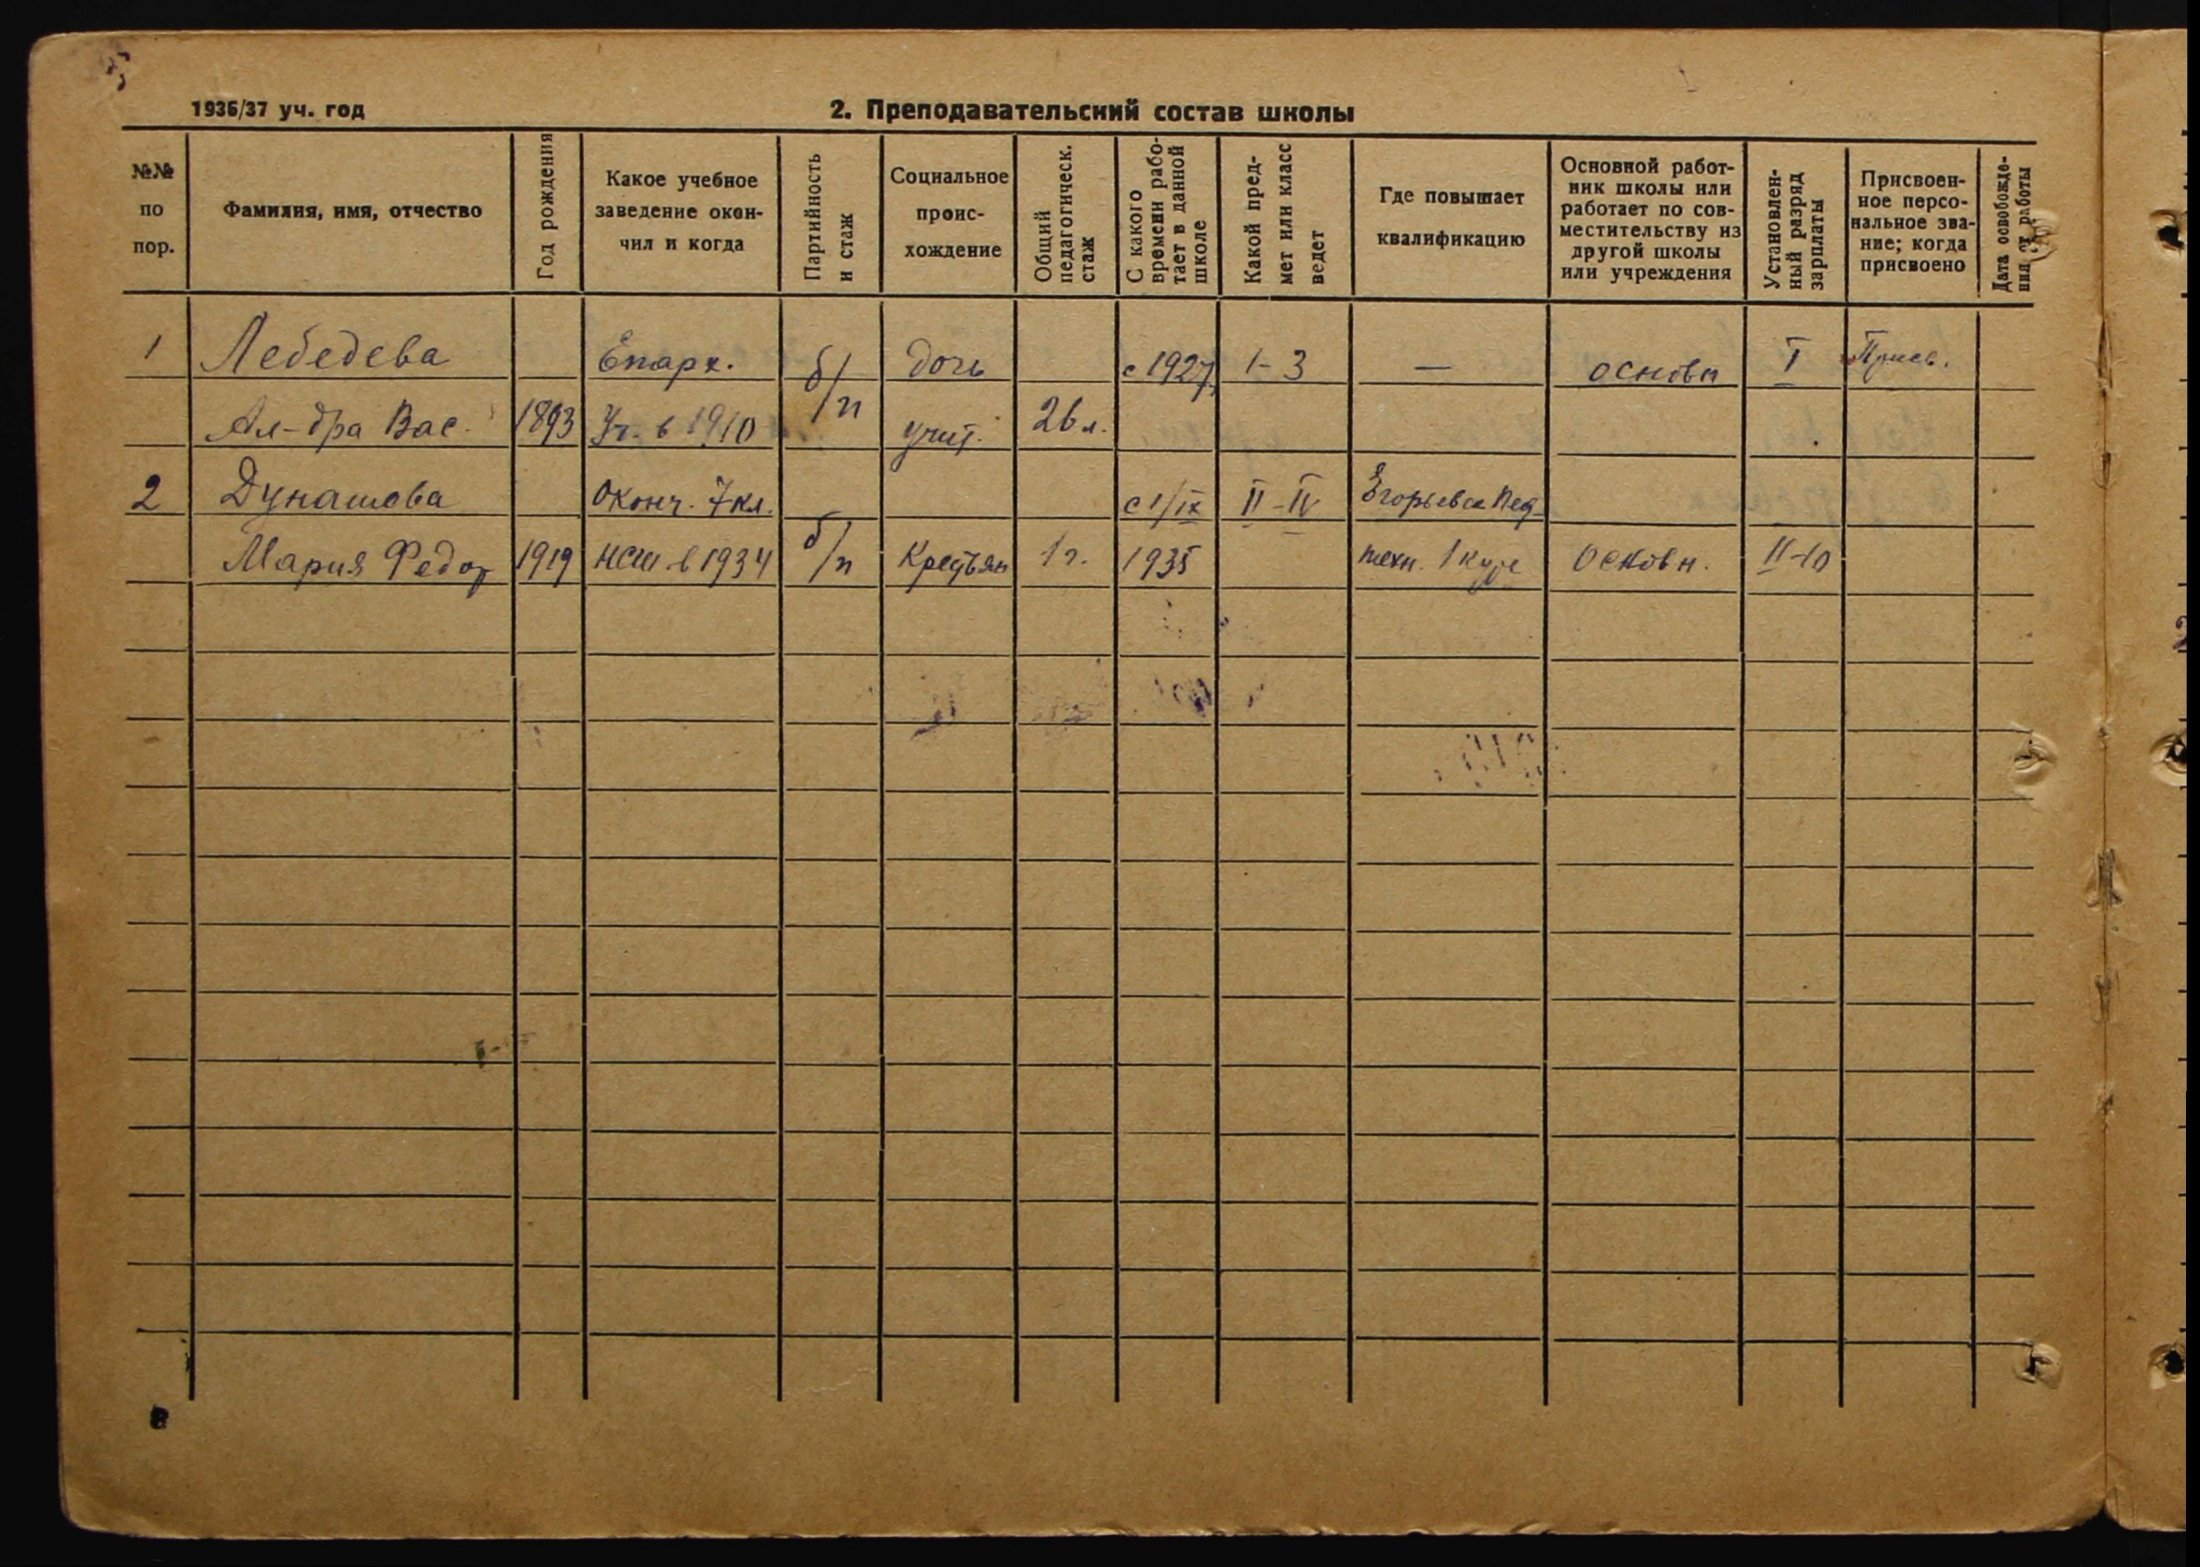 1936/37 уч. год
2. Преподавательский состав школы
№№ по пор.
Фамилия, имя, отчество
Год рождения
Какое учебное заведение окончил и когда
Партийность и стаж
Социальное происхождение
Общий педагогическ. стаж
С какого времени работает в данной школе
Какой предмет или класс ведет
Где повышает квалификацию
Основной работник школы или работает по совместительству из другой школы или учреждения
Установленный разряд зарплаты
Присвоенное персональное звание; когда присвоено
Дата освобождения от работы
1 Лебедева Епарх. б/п дочь с 1927 1-3 — основн I Присв.
Ал-дра Вас. 1893 Уч. в 1910 учит. 26 л.
2 Дунашова Оконч. 7 кл. б/п с 1/IX II-IV Егорьевск Пед.
Мария Федор 1919 НСШ в 1934 Крестьян 1 г. 1935 техн. 1 курс Основн. II-10
8